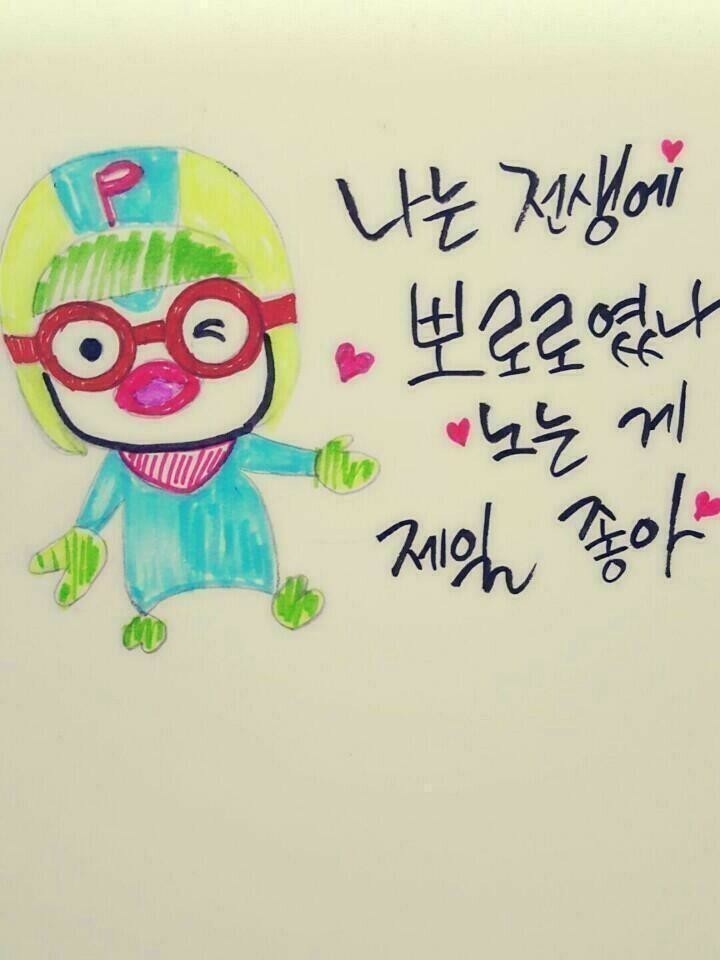 P
나는 전생에
뽀로로였나
노는 게
제일 좋아